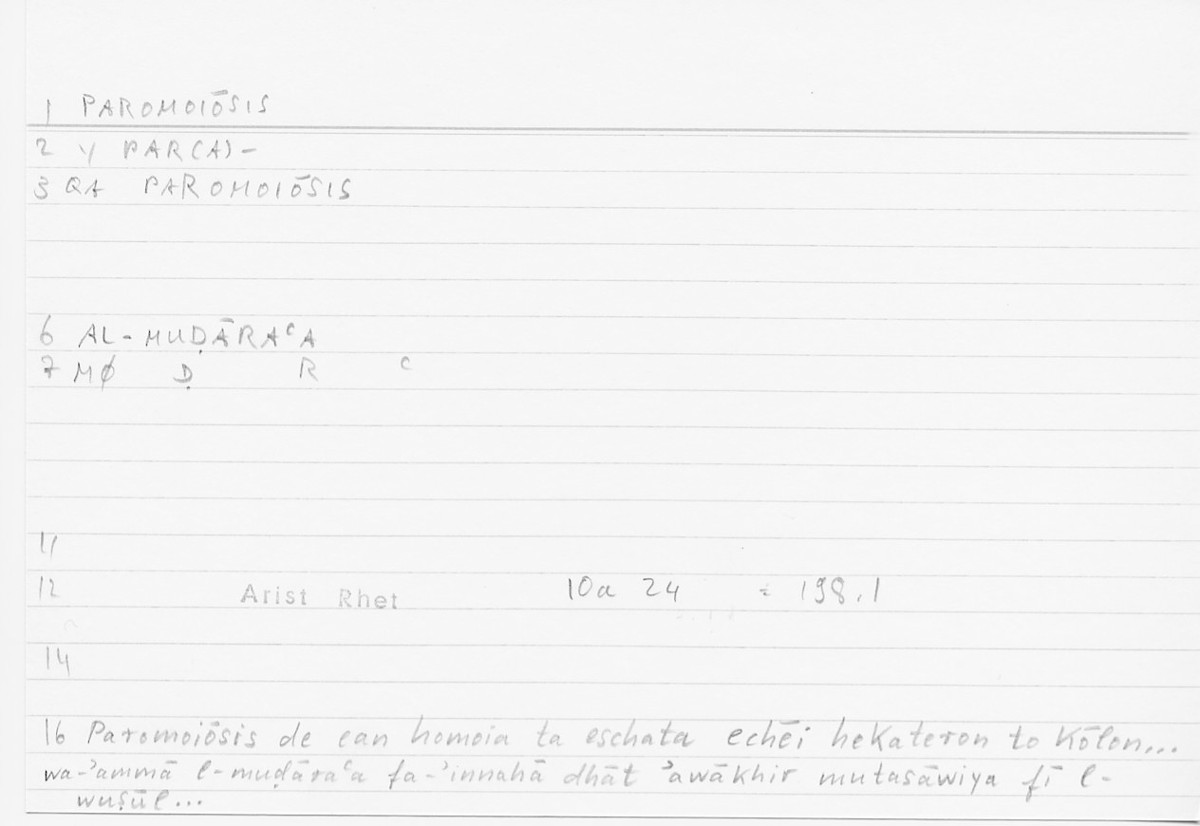 1 PAROMOIŌSIS
2 √ PAR(A)-
3 QA PAROMOIŌSIS
6 AL-MUḌĀRAᶜA
7 MØ Ḍ R ᶜ
11
12 Arist Rhet 10a 24 = 198.1
14
16 Paromoiōsis de ean homoia ta eschata echēi hekateron to kōlon...
wa-ʾammā l-muḍāraᶜa fa-ʾinnahā dhāt ʾawākhir mutasāwiya fī l-
wuṣūl...